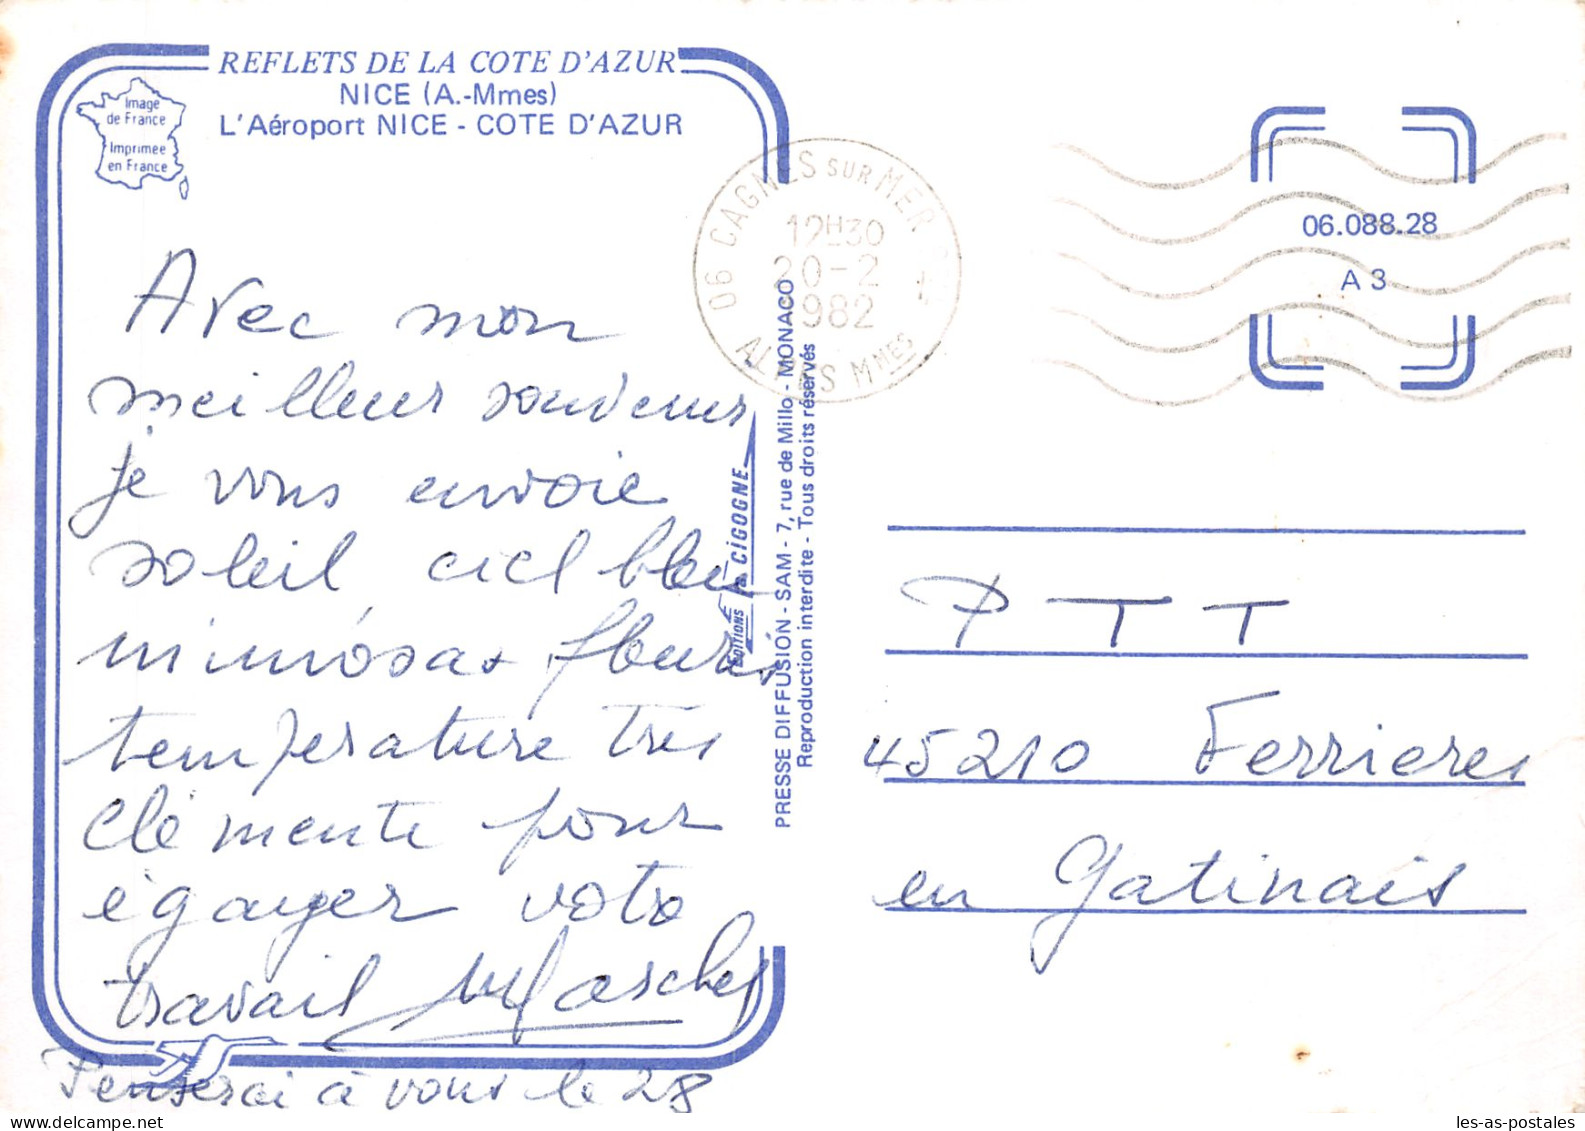 REFLETS DE LA COTE D'AZUR
NICE (A.-Mmes)
L'Aéroport NICE - COTE D'AZUR
Image
de France
Imprimée
en France
06 CAGNES SUR MER
12H30
20-2
1982
ALPES MMES
06.088.28
A 3
Avec mon
meilleur souvenir
je vous envoie
soleil ciel bleu
mimosas fleuris
température très
clémente pour
égayer votre
travail
Penserai à vous le 28
EDITIONS LA CIGOGNE
PRESSE DIFFUSION - SAM - 7, rue de Millo - MONACO
Reproduction interdite - Tous droits réservés
PTT
45210 Ferrieres
en Gatinais
les-as-postales